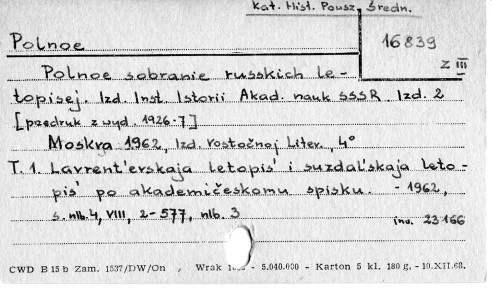 Kat. Hist. Powsz. Średn.
Polnoe
16839
Z III
Polnoe sobranie russkich le-
topisej. Izd. Inst. Istorii Akad. nauk SSSR. Izd. 2
[przedruk z wyd. 1926-7]
Moskva 1962, Izd. Vostočnoj Liter., 4°
T. 1. Lavrent'evskaja letopis' i suzdal'skaja leto-
pis' po akademičeskomu spisku. - 1962,
s. nlb. 4, VIII, 2-577, nlb. 3
inw. 23166
CWD B 15 b Zam. 1337/DW/On , Wrak - 5.040.000 - Karton 5 kl. 180 g. - 10.XII.68.